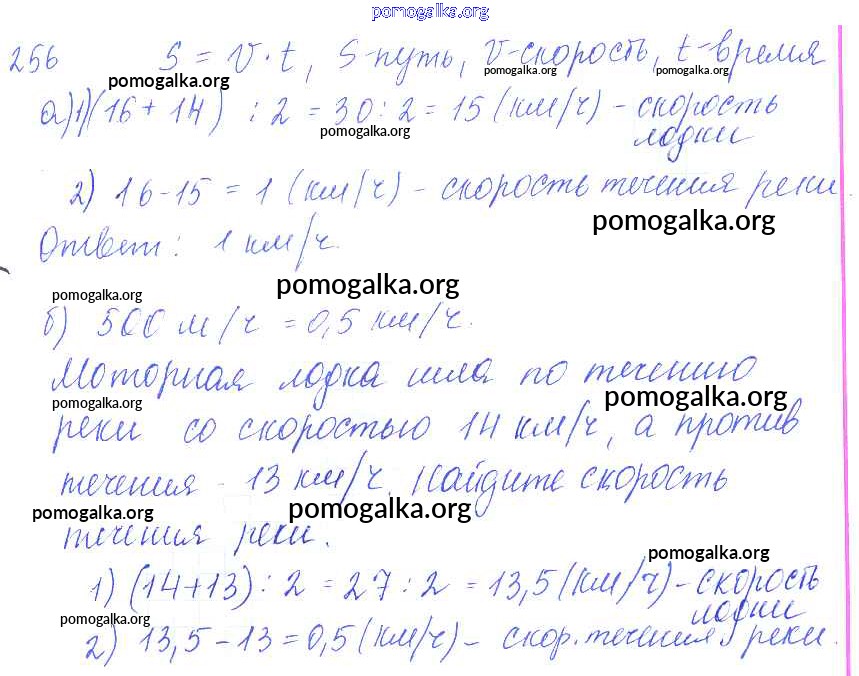 pomogalka.org
256 S = v · t, S-путь, v-скорость, t-время
pomogalka.org pomogalka.org pomogalka.org
а) 1) (16 + 14) : 2 = 30 : 2 = 15 (км/ч) - скорость
pomogalka.org
лодки
2) 16 - 15 = 1 (км/ч) - скорость течения реки.
pomogalka.org
Ответ: 1 км/ч.
pomogalka.org
pomogalka.org
б) 500 м/ч = 0,5 км/ч.
Моторная лодка шла по течению
pomogalka.org pomogalka.org
реки со скоростью 14 км/ч, а против
течения - 13 км/ч. Найдите скорость
pomogalka.org pomogalka.org
течения реки.
pomogalka.org
1) (14+13) : 2 = 27 : 2 = 13,5 (км/ч) - скорость
лодки
pomogalka.org
2) 13,5 - 13 = 0,5 (км/ч) - скор. течения реки.